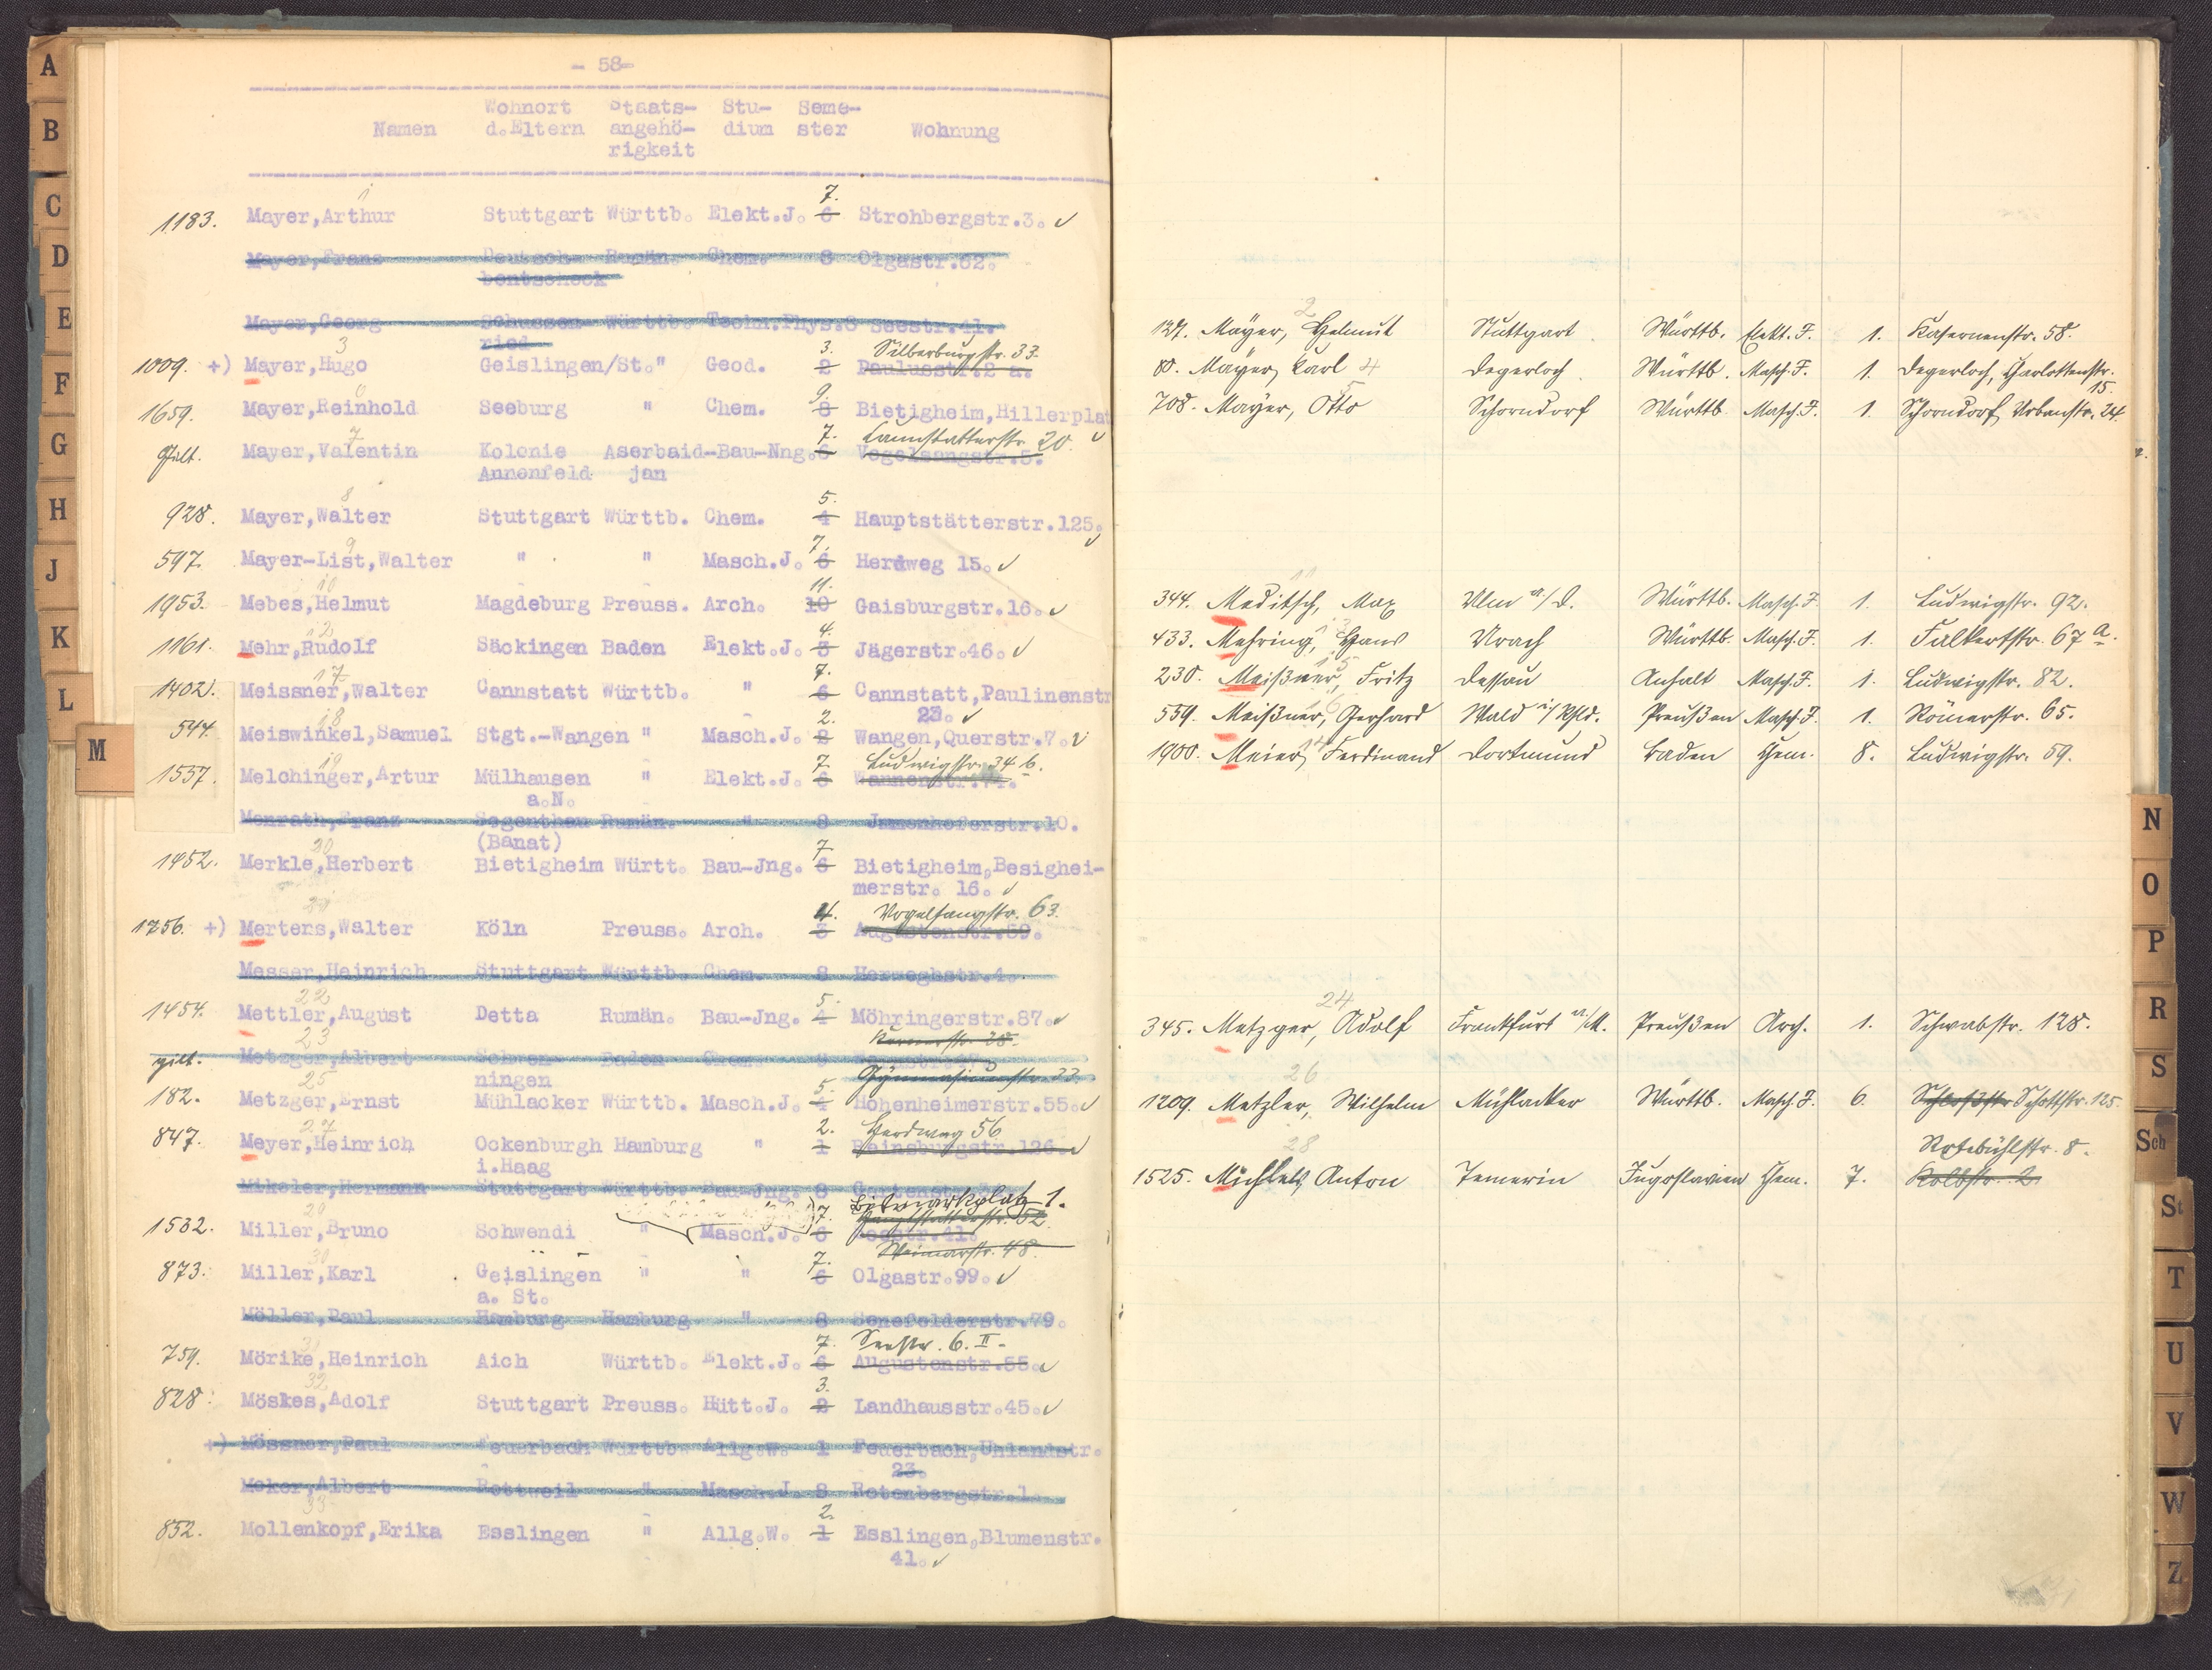 - 58 -
Namen
Wohnort d.Eltern
Staats-angehö-rigkeit
Stu-dium
Seme-ster
Wohnung
1
7.
1183. Mayer,Arthur Stuttgart Württb. Elekt.J. 6 Strohbergstr.3.
Mayer,Franz Deutsch- Rumän. Chem. 8 Olgastr.62.
bentscheck
Mayer,Georg Schussen- Württb. Techn.Phys.8 Seestr.41.
ried
3 3. Silberburgstr. 33.
1009. +) Mayer,Hugo Geislingen/St. " Geod. 2 Paulusstr.2 a.
9.
1659. Mayer,Reinhold Seeburg " Chem. 8 Bietigheim,Hillerplat
7 7. Cannstatterstr. 20.
Gilt. Mayer,Valentin Kolonie Aserbaid-Bau-Nng. 6 Vogelsangstr.5.
Annenfeld jan
8 5.
928. Mayer,Walter Stuttgart Württb. Chem. 4 Hauptstätterstr.125.
9 7.
597. Mayer-List,Walter " " Masch.J. 6 Herdweg 15.
10 11.
1953. Mebes,Helmut Magdeburg Preuss. Arch. 10 Gaisburgstr.16.
12 4.
1161. Mehr,Rudolf Säckingen Baden Elekt.J. 3 Jägerstr.46.
17 7.
1402. Meissner,Walter Cannstatt Württb. " 6 Cannstatt,Paulinenstr
23.
18 2.
544. Meiswinkel,Samuel Stgt.-Wangen " Masch.J. 2 Wangen,Querstr.7.
19 7. Ludwigstr. 34 b.
1557. Melchinger,Artur Mülhausen " Elekt.J. 6 Wannenstr.74.
a.N.
Menrath,Franz Segenthau Rumän. " 8 Jmmenhoferstr.10.
(Banat)
20 7.
1452. Merkle,Herbert Bietigheim Württ. Bau-Jng. 6 Bietigheim,Besighei-
merstr. 16.
21 4. Vogelsangstr. 63.
1256. +) Merters,Walter Köln Preuss. Arch. 3 Augustenstr.59.
Messer,Heinrich Stuttgart Württb. Chem. 8 Herweghstr.4.
22 5.
1454. Mettler,August Detta Rumän. Bau-Jng. 4 Möhringerstr.87.
23
gilt. Metzger,Albert Baden Chem. 8
ningen Gymnasiumstr. 33.
25 5.
182. Metzger,Ernst Mühlacker Württb. Masch.J. 4 Hohenheimerstr.55.
27 2. Herdweg 56
847. Meyer,Heinrich Ockenburgh Hamburg " 1 Reinsburgstr.126.
i.Haag
Mikeler,Hermann Stuttgart Württb. Bau-Jng. 8
29 7. Bismarckplatz 1.
Hauptstätterstr. 52
1532. Miller,Bruno Schwendi " Masch.J. 6
Weimarstr. 48.
30 7.
873. Miller,Karl Geislingen " " 6 Olgastr.99.
a. St.
Möller,Paul Hamburg Hamburg " 8 Senefelderstr.79.
31 7. Seestr. 6. II.
759. Mörike,Heinrich Aich Württb. Elekt.J. 6 Augustenstr.55.
32 3.
828. Möskes,Adolf Stuttgart Preuss. Hütt.J. 2 Landhausstr.45.
+) Mössner,Paul Feuerbach Württb. Allg.W. 1 Feuerbach,Uhlandstr.
23.
Moker,Albert Rottweil " Masch.J. 8 Rotenbergstr.1.
33 2.
852. Mollenkopf,Erika Esslingen " Allg.W. 1 Esslingen,Blumenstr.
41.
2
127. Mayer, Helmut Stuttgart Württb. Elekt. J. 1. Kasernenstr. 58.
80. Mayer, Karl 4 Degerloch Württb. Masch. J. 1. Degerloch, Charlottenstr. 15.
5
708. Mayer, Otto Schorndorf Württb. Masch. J. 1. Schorndorf, Urbanstr. 24.
11
344. Meditsch, Max Ulm a/D. Württb. Masch. J. 1. Ludwigstr. 92.
13
433. Mehring, Hans Urach Württb. Masch. J. 1. Falkertstr. 67 a.
15
230. Meißner, Fritz Dessau Anhalt Masch. J. 1. Ludwigstr. 82.
16
559. Meißner, Gerhard Wald i/Rhld. Preußen Masch. J. 1. Römerstr. 65.
14
1900. Meier, Ferdinand Dortmund Baden Chem. 8. Ludwigstr. 59.
24
345. Metzger, Adolf Frankfurt a/M. Preußen Arch. 1. Schwabstr. 128.
26
1209. Metzler, Wilhelm Mühlacker Württb. Masch. J. 6. Schloßstr. Schottstr. 125.
28 Rotebühlstr. 8.
1525. Michels, Anton Temerin Jugoslavien Chem. 7. Kolbstr. 2.
A
B
C
D
E
F
G
H
J
K
L
M
N
O
P
R
S
Sch
St
T
U
V
W
Z